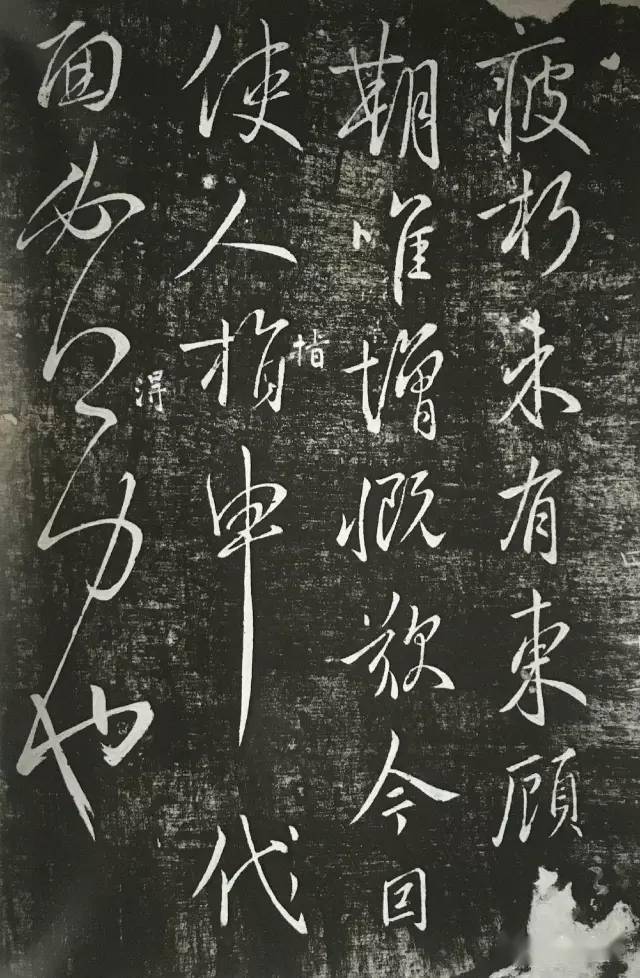 疲朽未有東顧
期唯增慨歎今因
使人指申代
指
面必得力也
得